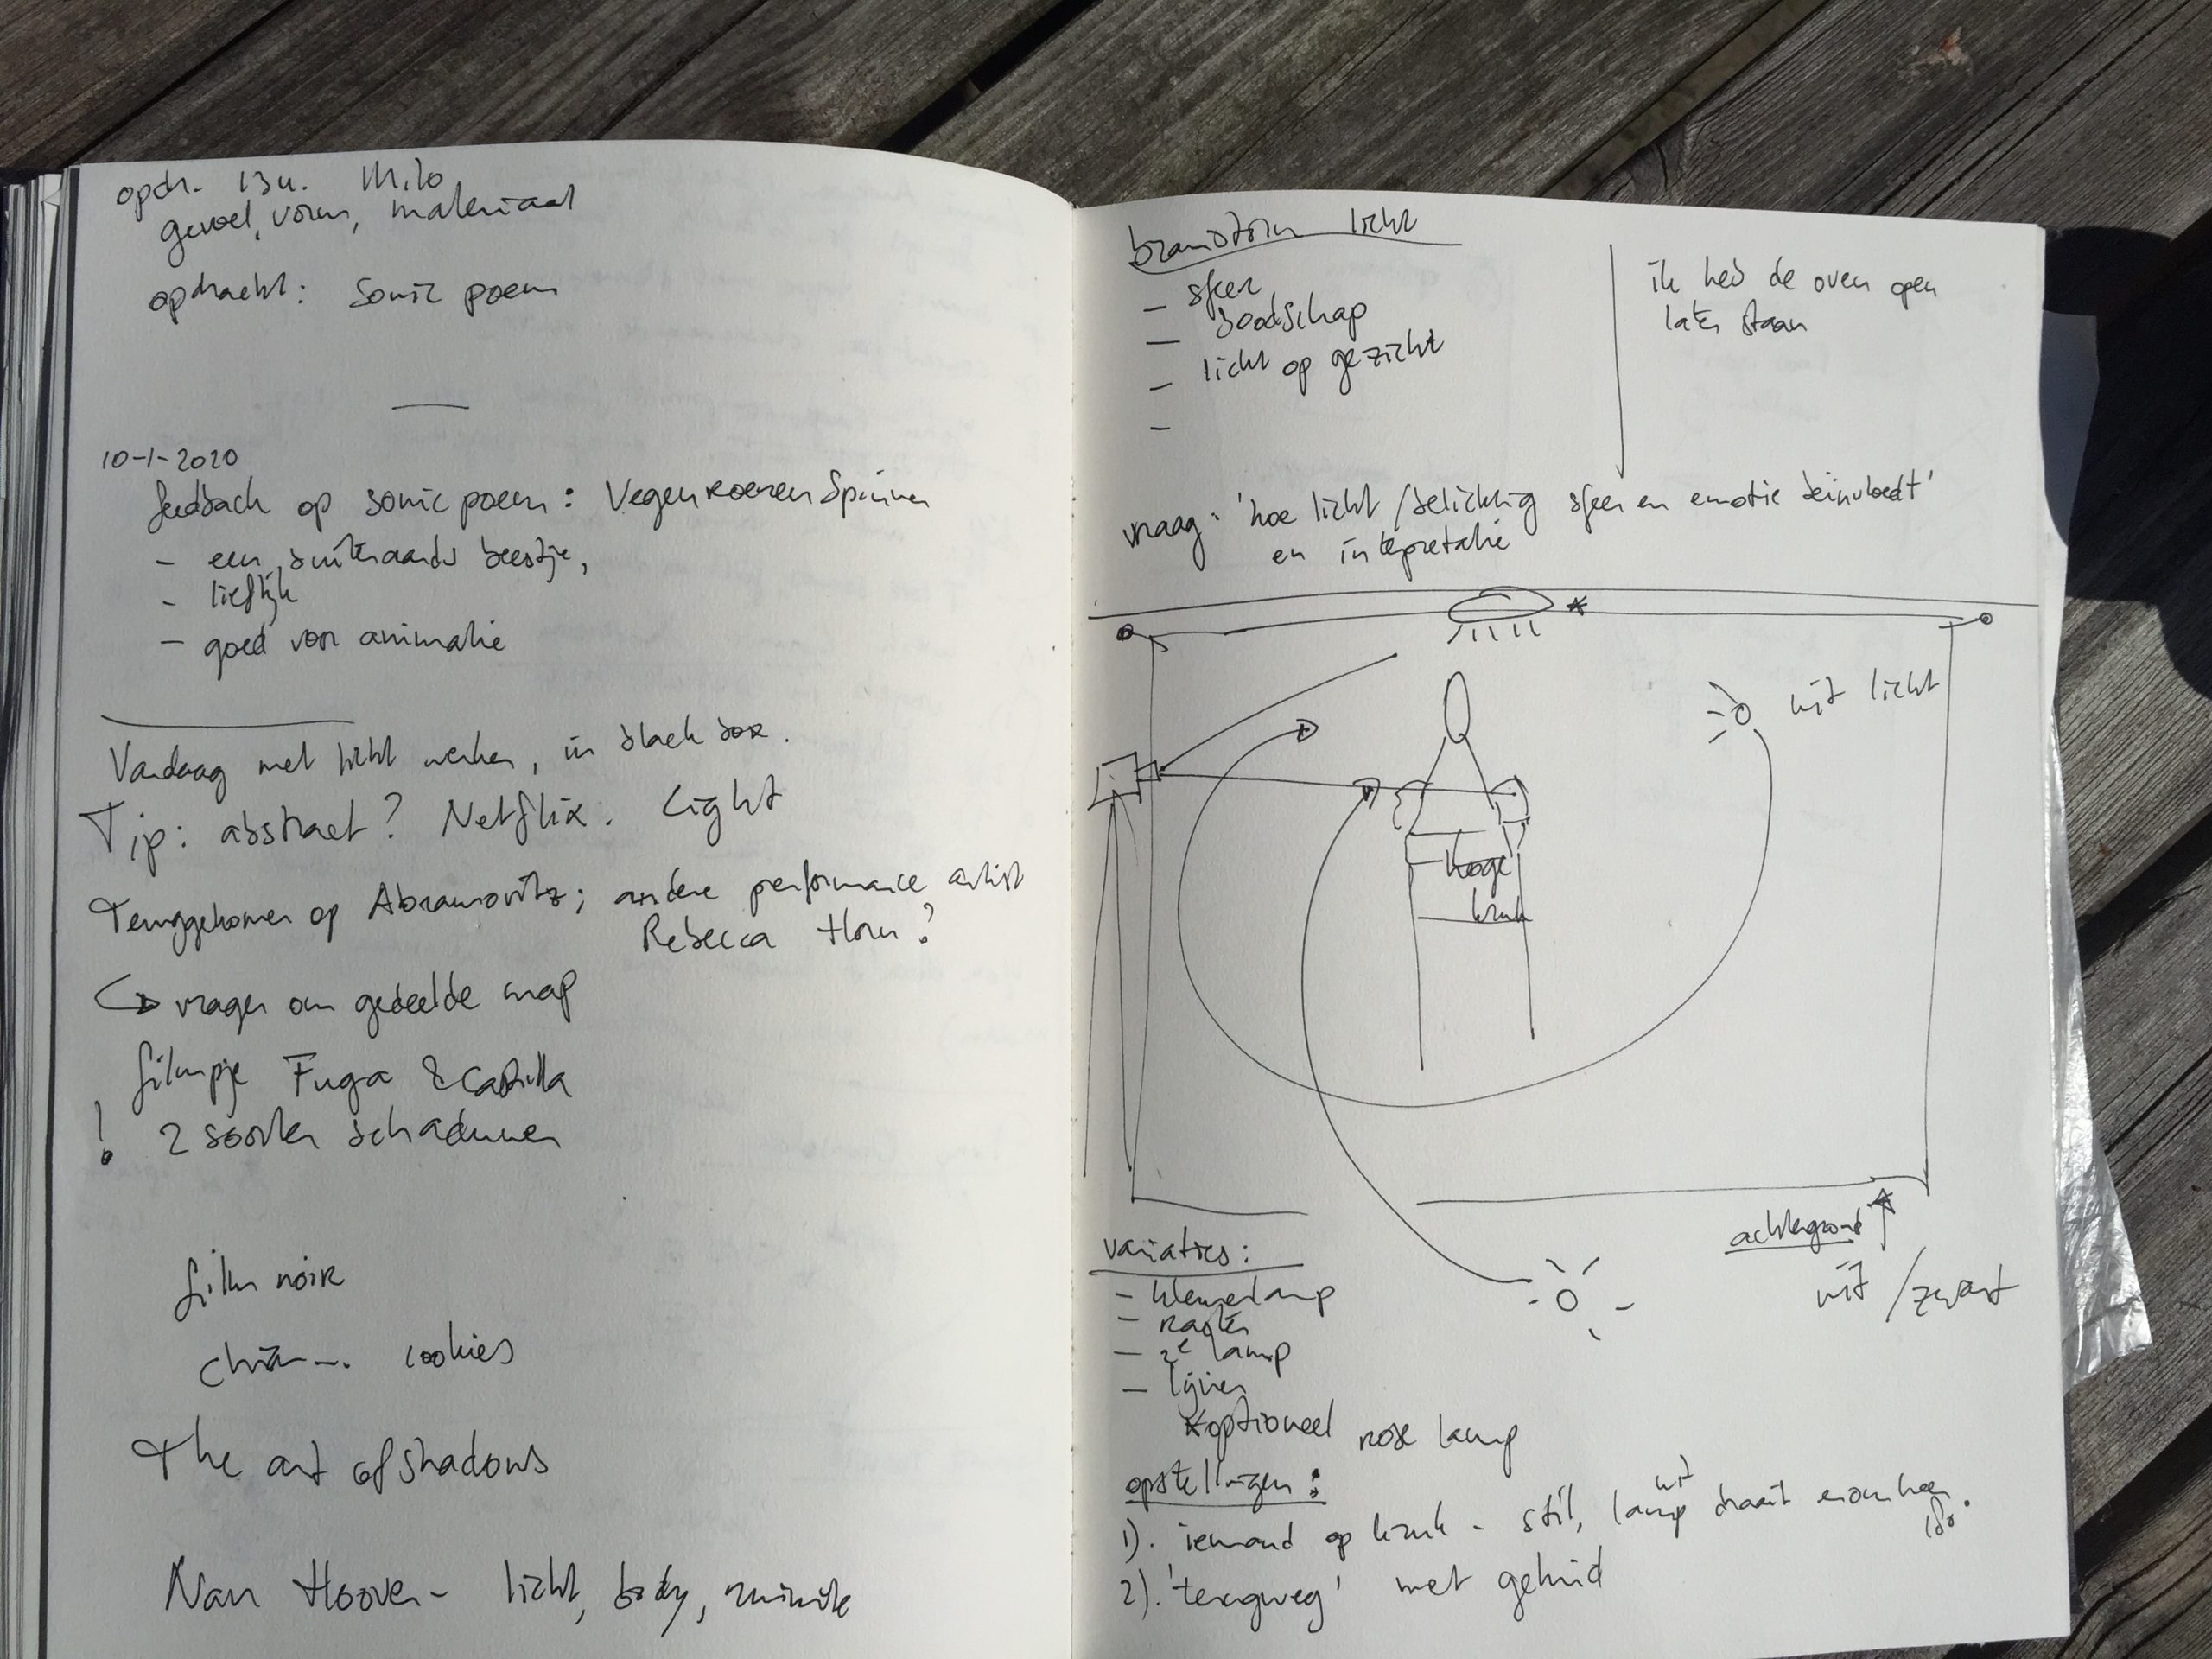 opdr. 13u. Milo
gevoel, vorm, materiaal
opdracht: sonic poem
10-1-2020
feedback op sonic poem: Vegen Roeren Spinnen
- een buitenaards beestje,
- lieflijk
- goed voor animatie
Vandaag met licht werken, in black box.
Tip: abstract? Netflix. Light
Teruggekomen op Abramovitz; andere performance artist
Rebecca Horn?
vragen om gedeelde map
filmpje Fuga &
! 2 soorten schaduwen
film noir
cookies
The art of shadows
Nan Hoover - licht, body, ruimte
brainstorm licht
- sfeer
- boodschap
- licht op gezicht
-
ik heb de oven open
laten staan
vraag: 'hoe licht/belichting sfeer en emotie beinvloedt'
en intepretatie
*
wit licht
hoge
kruk
achtergrond
wit/zwart
variaties:
- kleurenlamp
- raster
- 2e lamp
- lijnen
*optioneel rose lamp
opstellingen:
wit
1). iemand op kruk - stil, lamp draait eromheen.
180
2). 'terugweg' met geluid